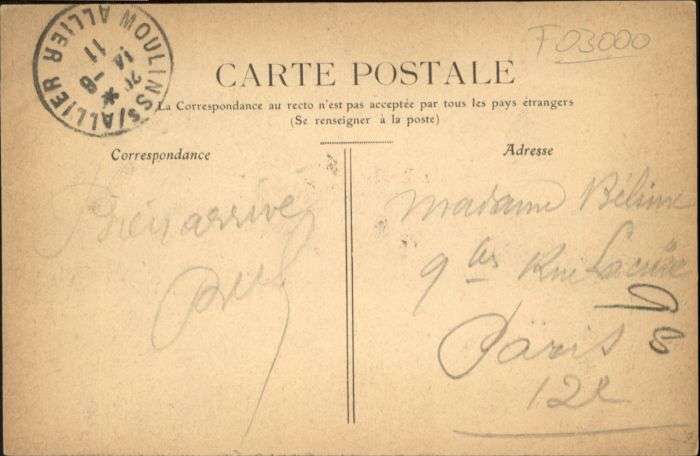 MOULINS S/ALLIER ALLIER
14
11
18
F03000
CARTE POSTALE
La Correspondance au recto n'est pas acceptée par tous les pays étrangers
(Se renseigner à la poste)
Correspondance
Bien arrivé
Adresse
Madame Béline
9 bis Rue Lacuée
Paris
12e
98